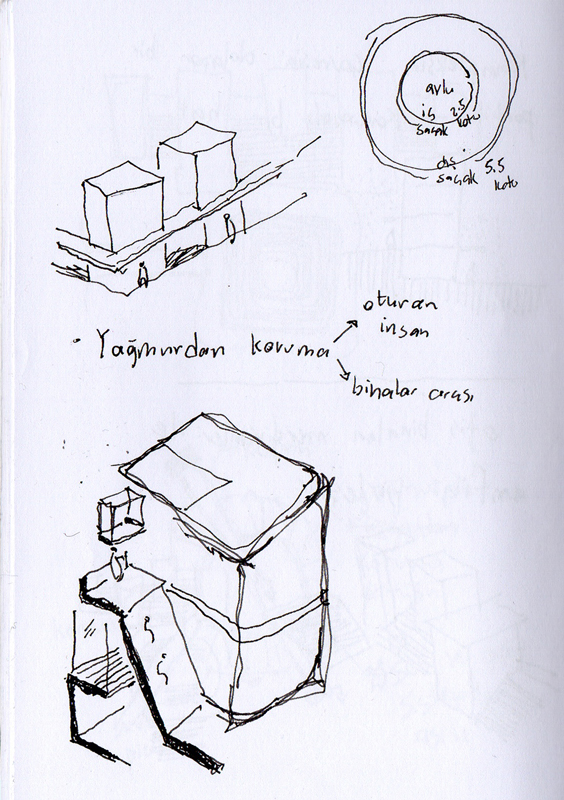 avlu
iç 2.5
saçak kotu
dış 5.5
saçak kotu
• Yağmurdan koruma
oturan
insan
binalar arası